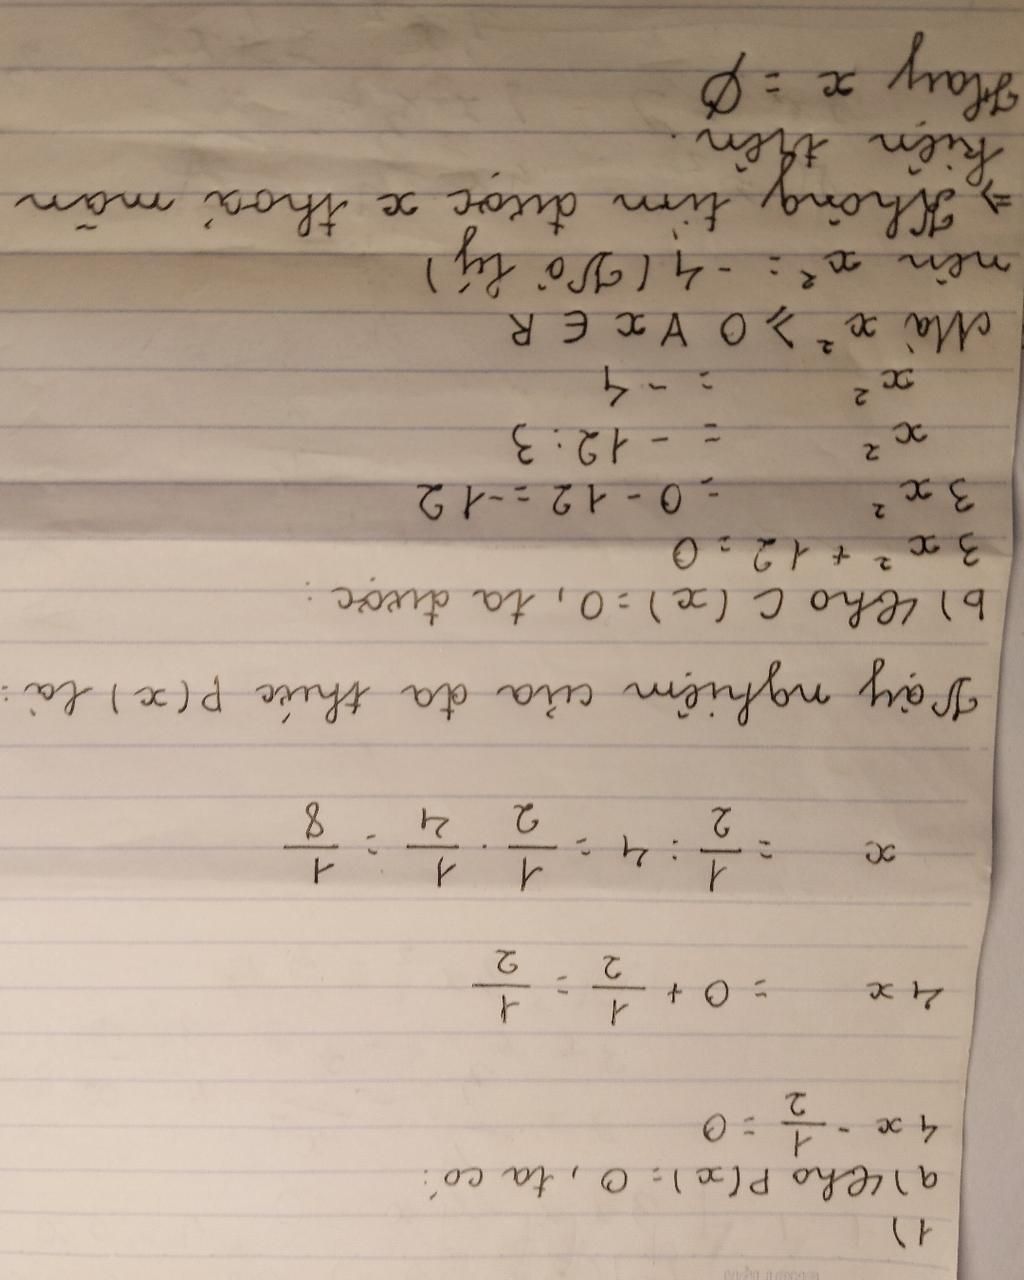 1)
a) Cho P(x) = 0, ta có:
4x - 1/2 = 0
4x = 0 + 1/2 = 1/2
x = 1/2 : 4 = 1/2 . 1/4 = 1/8
Vậy nghiệm của đa thức P(x) là:
b) Cho C(x) = 0, ta được:
3x² + 12 = 0
3x² = 0 - 12 = -12
x² = -12 : 3
x² = -4
Mà x² ⩾ 0 ∀ x ∈ R
nên x² = -4 (Vô lý)
=> Không tìm được x thoả mãn
kiện trên.
Hay x = ∅